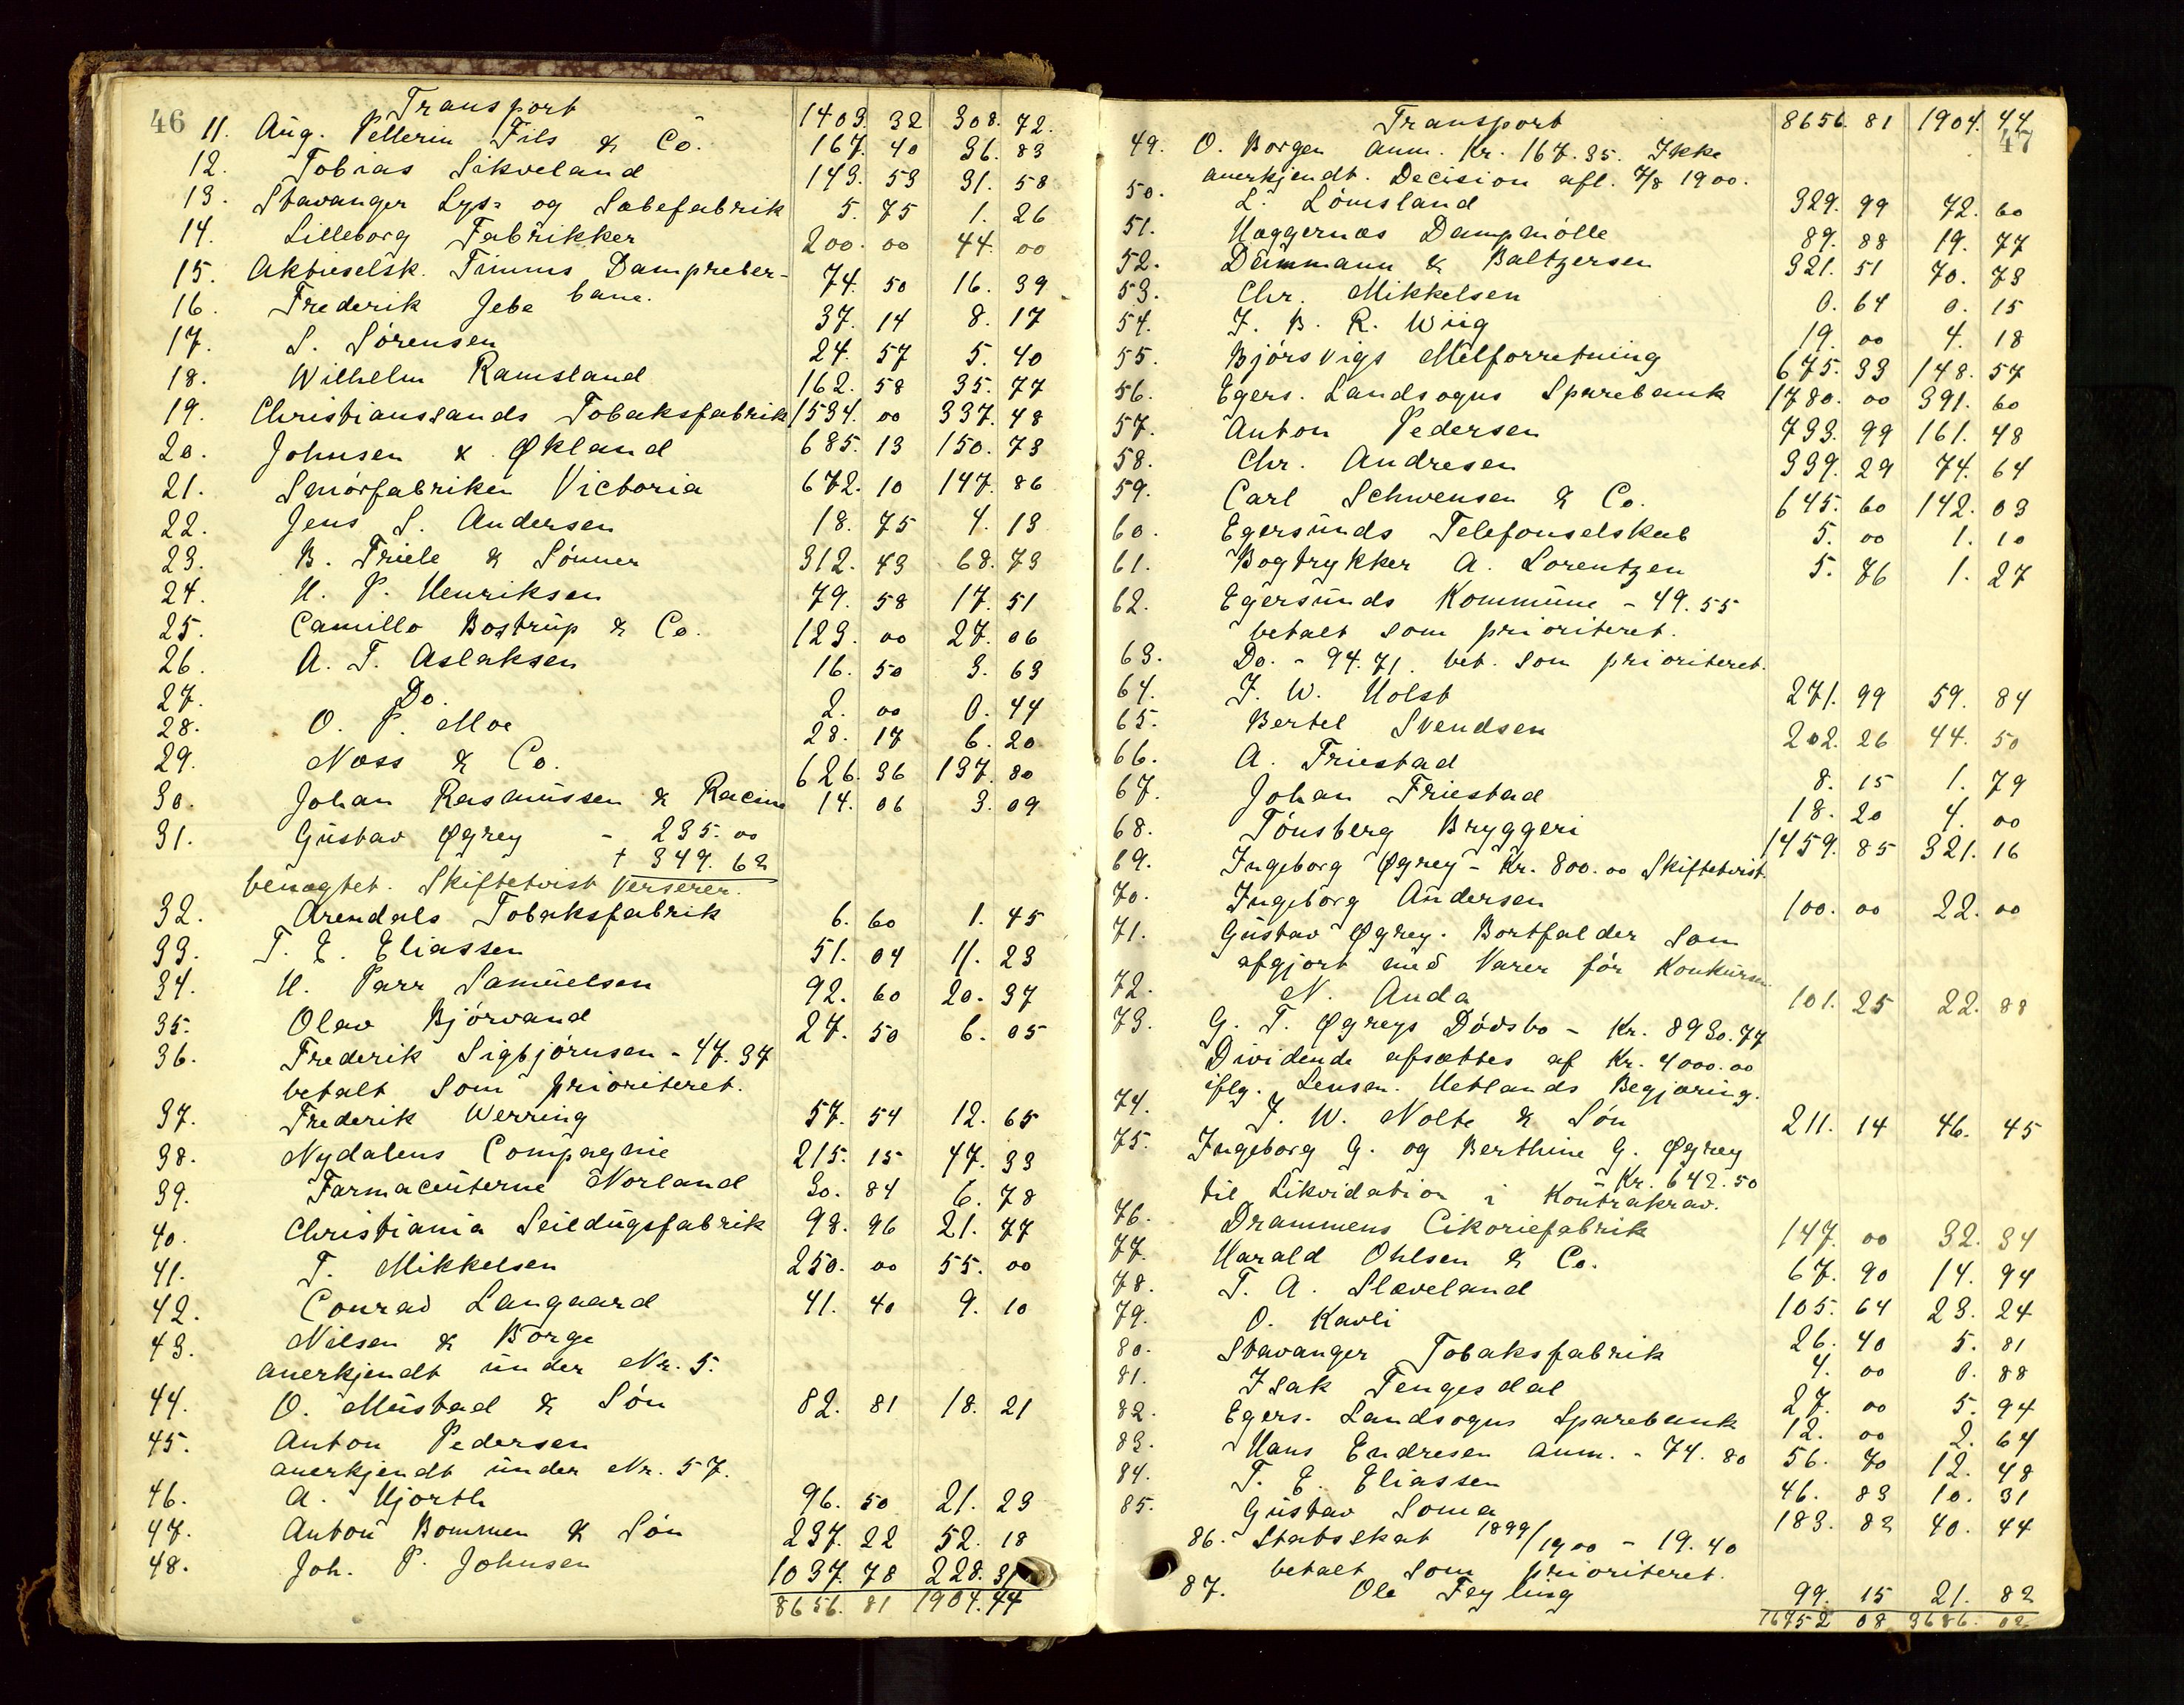 46 Transport 1403. 32 308. 72.
11. Aug. Pellerin Fils & Co. 167. 40 36. 83
12. Tobias Sikveland 143. 53 31. 58
13. Stavanger Lys- og Sæbefabrik 5. 75 1. 26
14. Lilleborg Fabrikker 200. 00 44. 00
15. Aktieselsk. Timms Dampreber- 74. 50 16. 39
bane.
16. Frederik Jebe 37. 14 8. 17
17. S. Sörensen 24. 57 5. 40
18. Wilhelm Ramsland 162. 58 35. 77
19. Christianssands Tobaksfabrik 1534. 00 337. 48
20. Johnsen & Økland 685. 13 150. 73
21. Smörfabriken Victoria 672. 10 147. 86
22. Jens S. Andersen 18. 75 4. 13
23. B. Friele & Sönner 312. 43 68. 73
24. H. P. Henriksen 79. 58 17. 51
25. Camillo Bostrup & Co. 123. 00 27. 06
26. A. T. Aslaksen 16. 50 3. 63
27. Do. 2. 00 0. 44
28. O. P. Moe 28. 17 6. 20
29. Næss & Co. 626. 36 137. 80
30. Johan Rasmussen & Racine 14. 06 3. 09
31. Gustav Øgrey - 235. 00
+ 349. 62
benægtet. Skiftetvist verserer.
32. Arendals Tobaksfabrik 6. 60 1. 45
33. T. E. Eliassen 51. 04 11. 23
34. H. Parr Samuelsen 92. 60 20. 37
35. Olav Björvand 27. 50 6. 05
36. Frederik Sigbjörnsen - 47. 37
betalt som prioriteret.
37. Frederik Werring 57. 54 12. 65
38. Nydalens Compagnie 215. 15 47. 33
39. Farmaceuterne Norland 30. 84 6. 78
40. Christiania Seildugsfabrik 98. 96 21. 77
41. T. Mikkelsen 250. 00 55. 00
42. Conrad Langaard 41. 40 9. 10
43. Nilsen & Borge
anerkjendt under Nr. 5.
44. O. Mustad & Sön 82. 81 18. 21
45. Anton Pedersen
anerkjendt under Nr. 57.
46. A. Hjorth 96. 50 21. 23
47. Anton Bommen & Sön 237. 22 52. 18
48. Joh. P. Johnsen 1037. 78 228. 31
8656. 81 1904. 44
Transport 8656. 81 1904. 44
47
49. O. Borgen anm. Kr. 167. 35. Ikke
anerkjendt. Decision afl. 7/8 1900.
50. L. Lömsland 329. 99 72. 60
51. Haggernæs Dampmölle 89. 88 19. 77
52. Dammann & Baltzersen 321. 51 70. 73
53. Chr. Mikkelsen 0. 64 0. 15
54. J. B. R. Wiig 19. 00 4. 18
55. Björsvigs Melforretning 675. 33 148. 57
56. Egers. Landsogns Sparebank 1780. 00 391. 60
57. Anton Pedersen 733. 99 161. 48
58. Chr. Andresen 339. 29 74. 64
59. Carl Schwensen & Co. 645. 60 142. 03
60. Egersunds Telefonselskab 5. 00 1. 10
61. Bogtrykker A. Lorentzen 5. 76 1. 27
62. Egersunds Kommune - 49. 55
betalt som prioriteret.
63. Do. - 94. 71. bet. som prioriteret.
64. J. W. Holst 271. 99 59. 84
65. Bertel Svendsen 202. 26 44. 50
66. A. Friestad 8. 15 1. 79
67. Johan Friestad 18. 20 4. 00
68. Tönsberg Bryggeri 1459. 85 321. 16
69. Ingeborg Øgrey - Kr. 800. 00 Skiftetvist.
70. Ingeborg Andersen 100. 00 22. 00
71. Gustav Øgrey. Bortfalder som
afgjort med Varer för Konkursen.
72. N. Anda 101. 25 22. 28
73. G. T. Øgreys Dödsbo - Kr. 8930. 77
Dividende afsættes af Kr. 4000. 00
iflg. Lensm. Hetlands Begjæring.
74. J. W. Nolte & Sön 211. 14 46. 45
75. Ingeborg G. og Berthine G. Øgrey
- Kr. 642. 50
til Likvidation i Kontrakrav.
76. Drammens Cikoriefabrik 147. 00 32. 34
77. Harald Ohlsen & Co. 67. 90 14. 94
78. T. A. Slæveland 105. 64 23. 24
79. O. Kavli 26. 40 5. 81
80. Stavanger Tobaksfabrik 4. 00 0. 88
81. Isak Tengesdal 27. 00 5. 94
82. Egers. Landsogns Sparebank 12. 00 2. 64
83. Hans Endresen anm. - 74. 80 56. 70 12. 48
84. T. E. Eliassen 46. 83 10. 31
85. Gustav Soma 183. 82 40. 44
86. Statsskat 1899/1900 - 19. 40
betalt som prioriteret.
87. Ole Feyling 99. 15 21. 82
16752 08 3686. 02